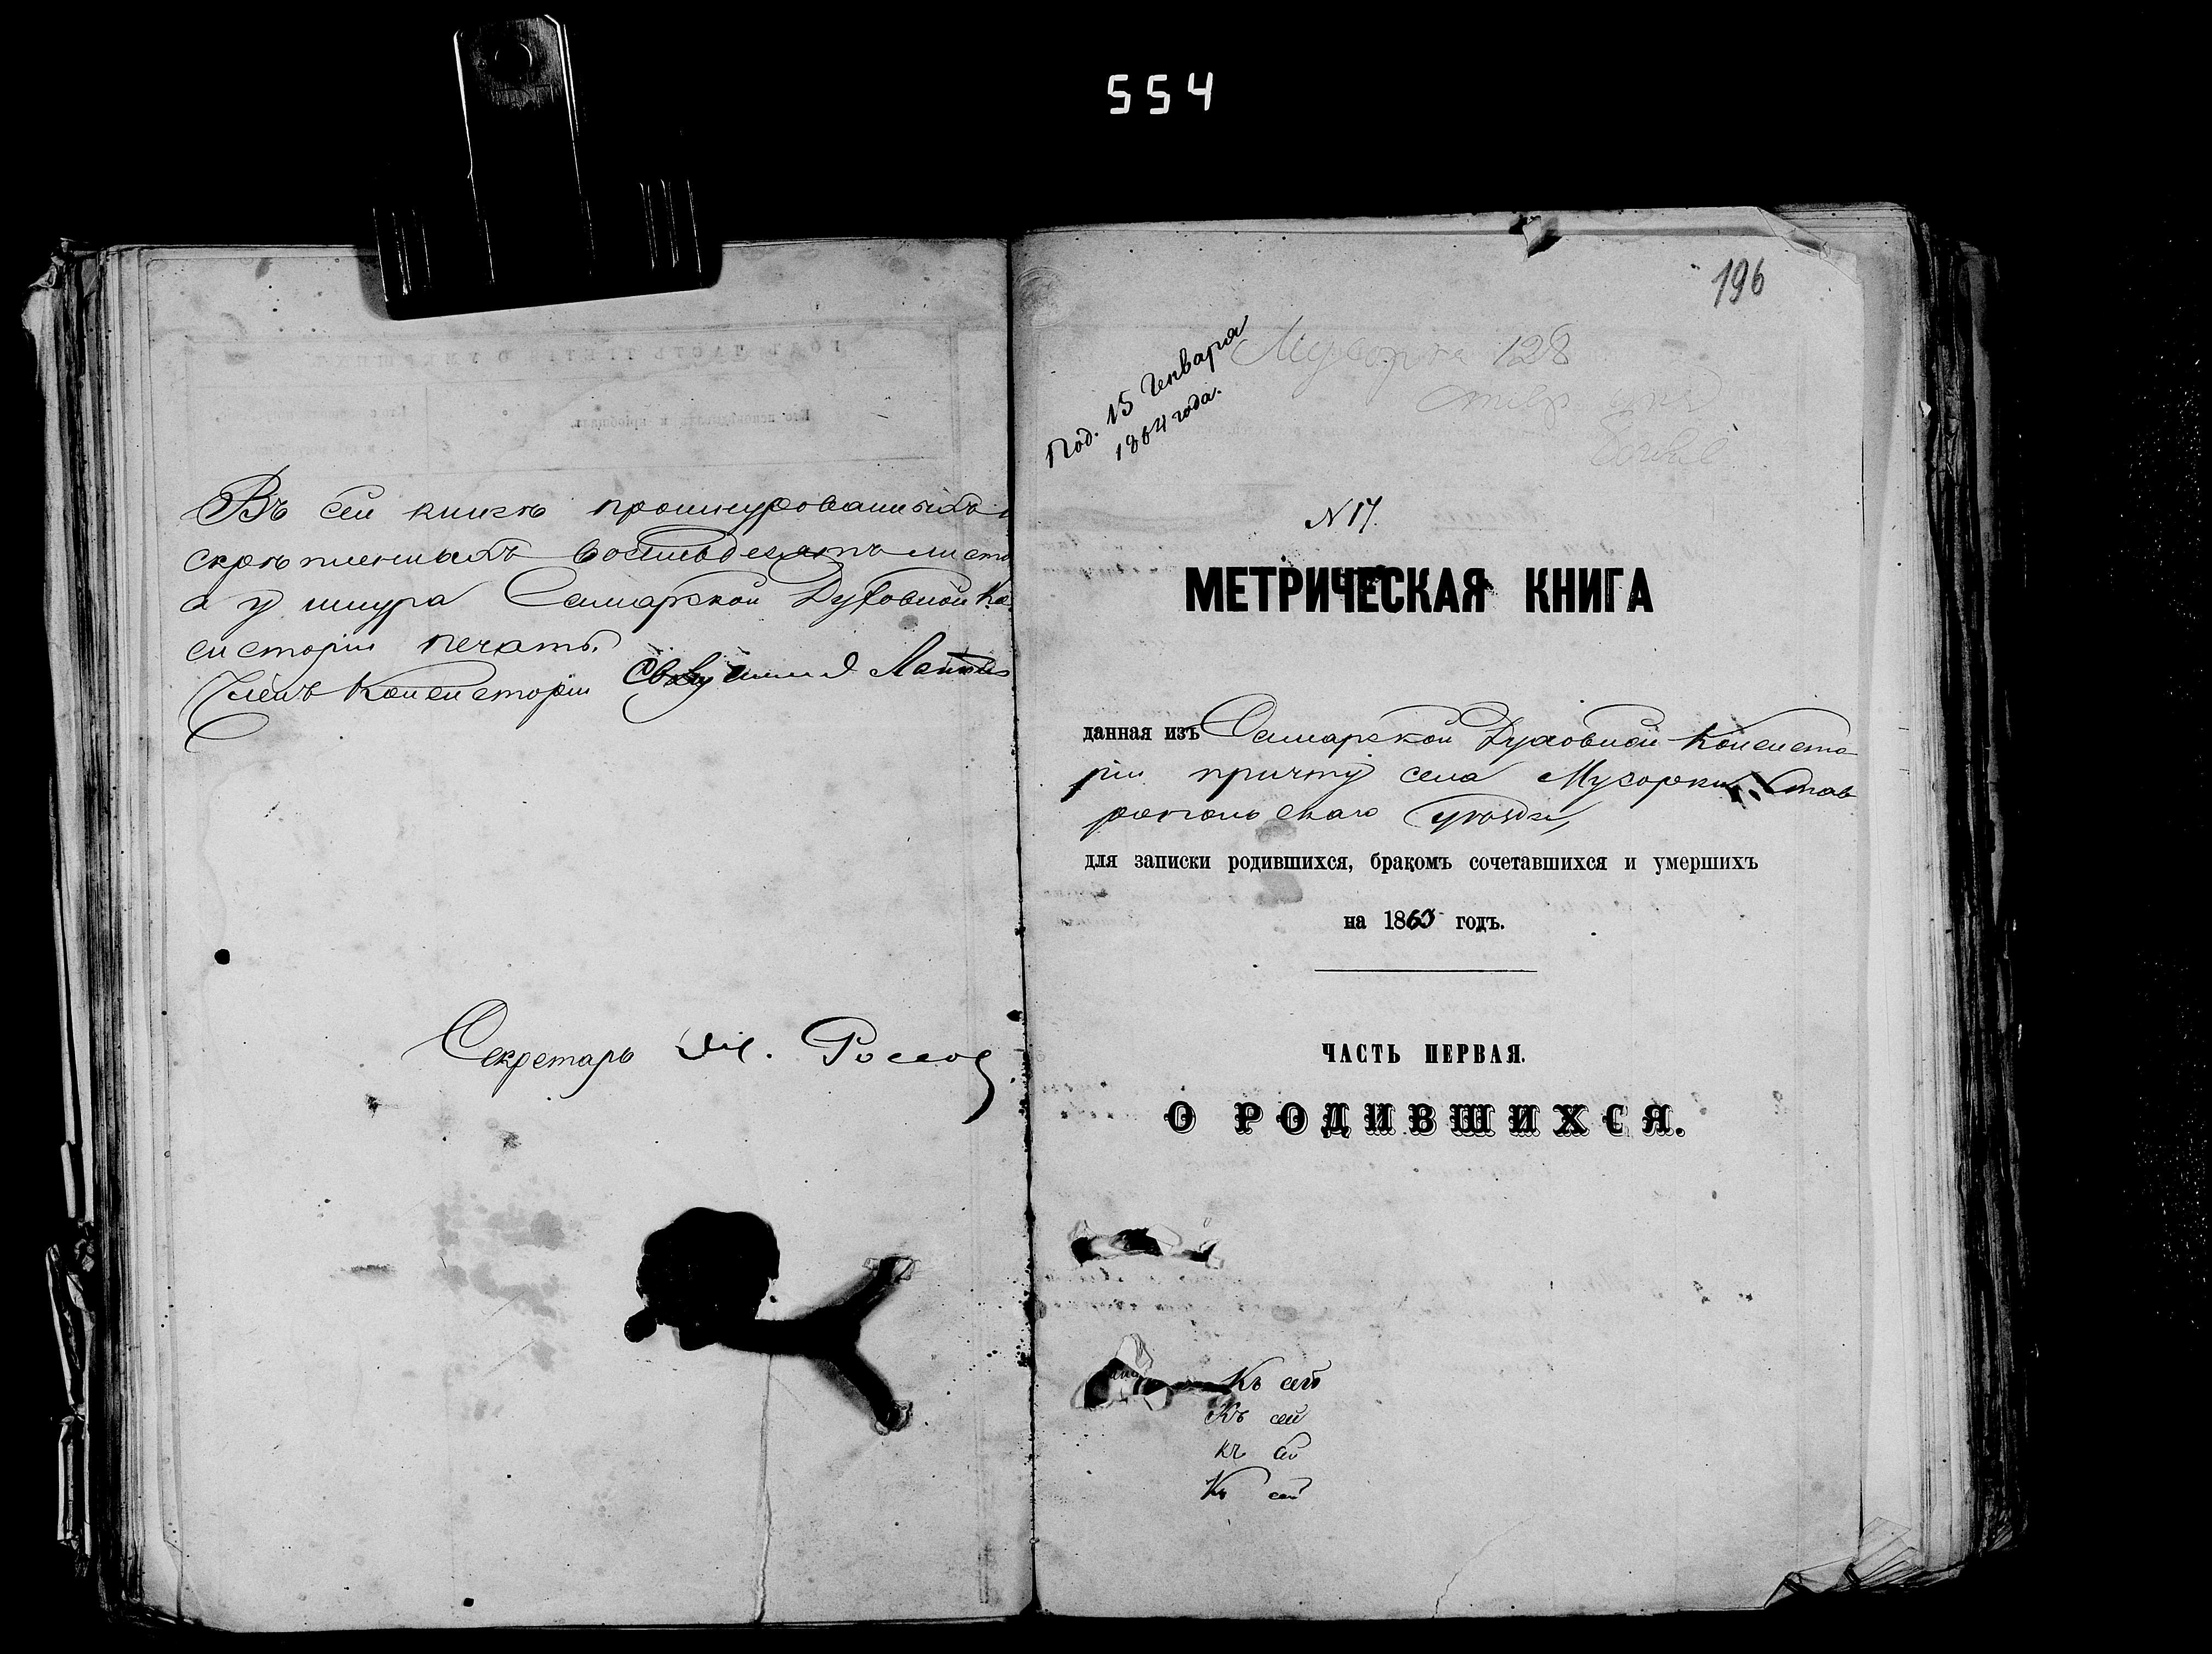 554
Въ сей книгѣ прошнурованныхъ
скрѣпленныхъ восемьдесятъ листо
а у шнура Самарской Духовной Ко
систоріи печать.
Членъ Консисторіи Священникъ
Секретарь Россов
196
Под. 15 Генваря
1864 года.
Мусорка 128
N 17.
МЕТРИЧЕСКАЯ КНИГА
данная изъ Самарской Духовной Консисто
ріи причту села Мусорки, Став
ропольскаго уѣзда,
для записки родившихся, бракомъ сочетавшихся и умершихъ
на 1863 годъ.
ЧАСТЬ ПЕРВАЯ.
О РОДИВШИХСЯ.
Къ сей
Къ сей
къ
Къ сей